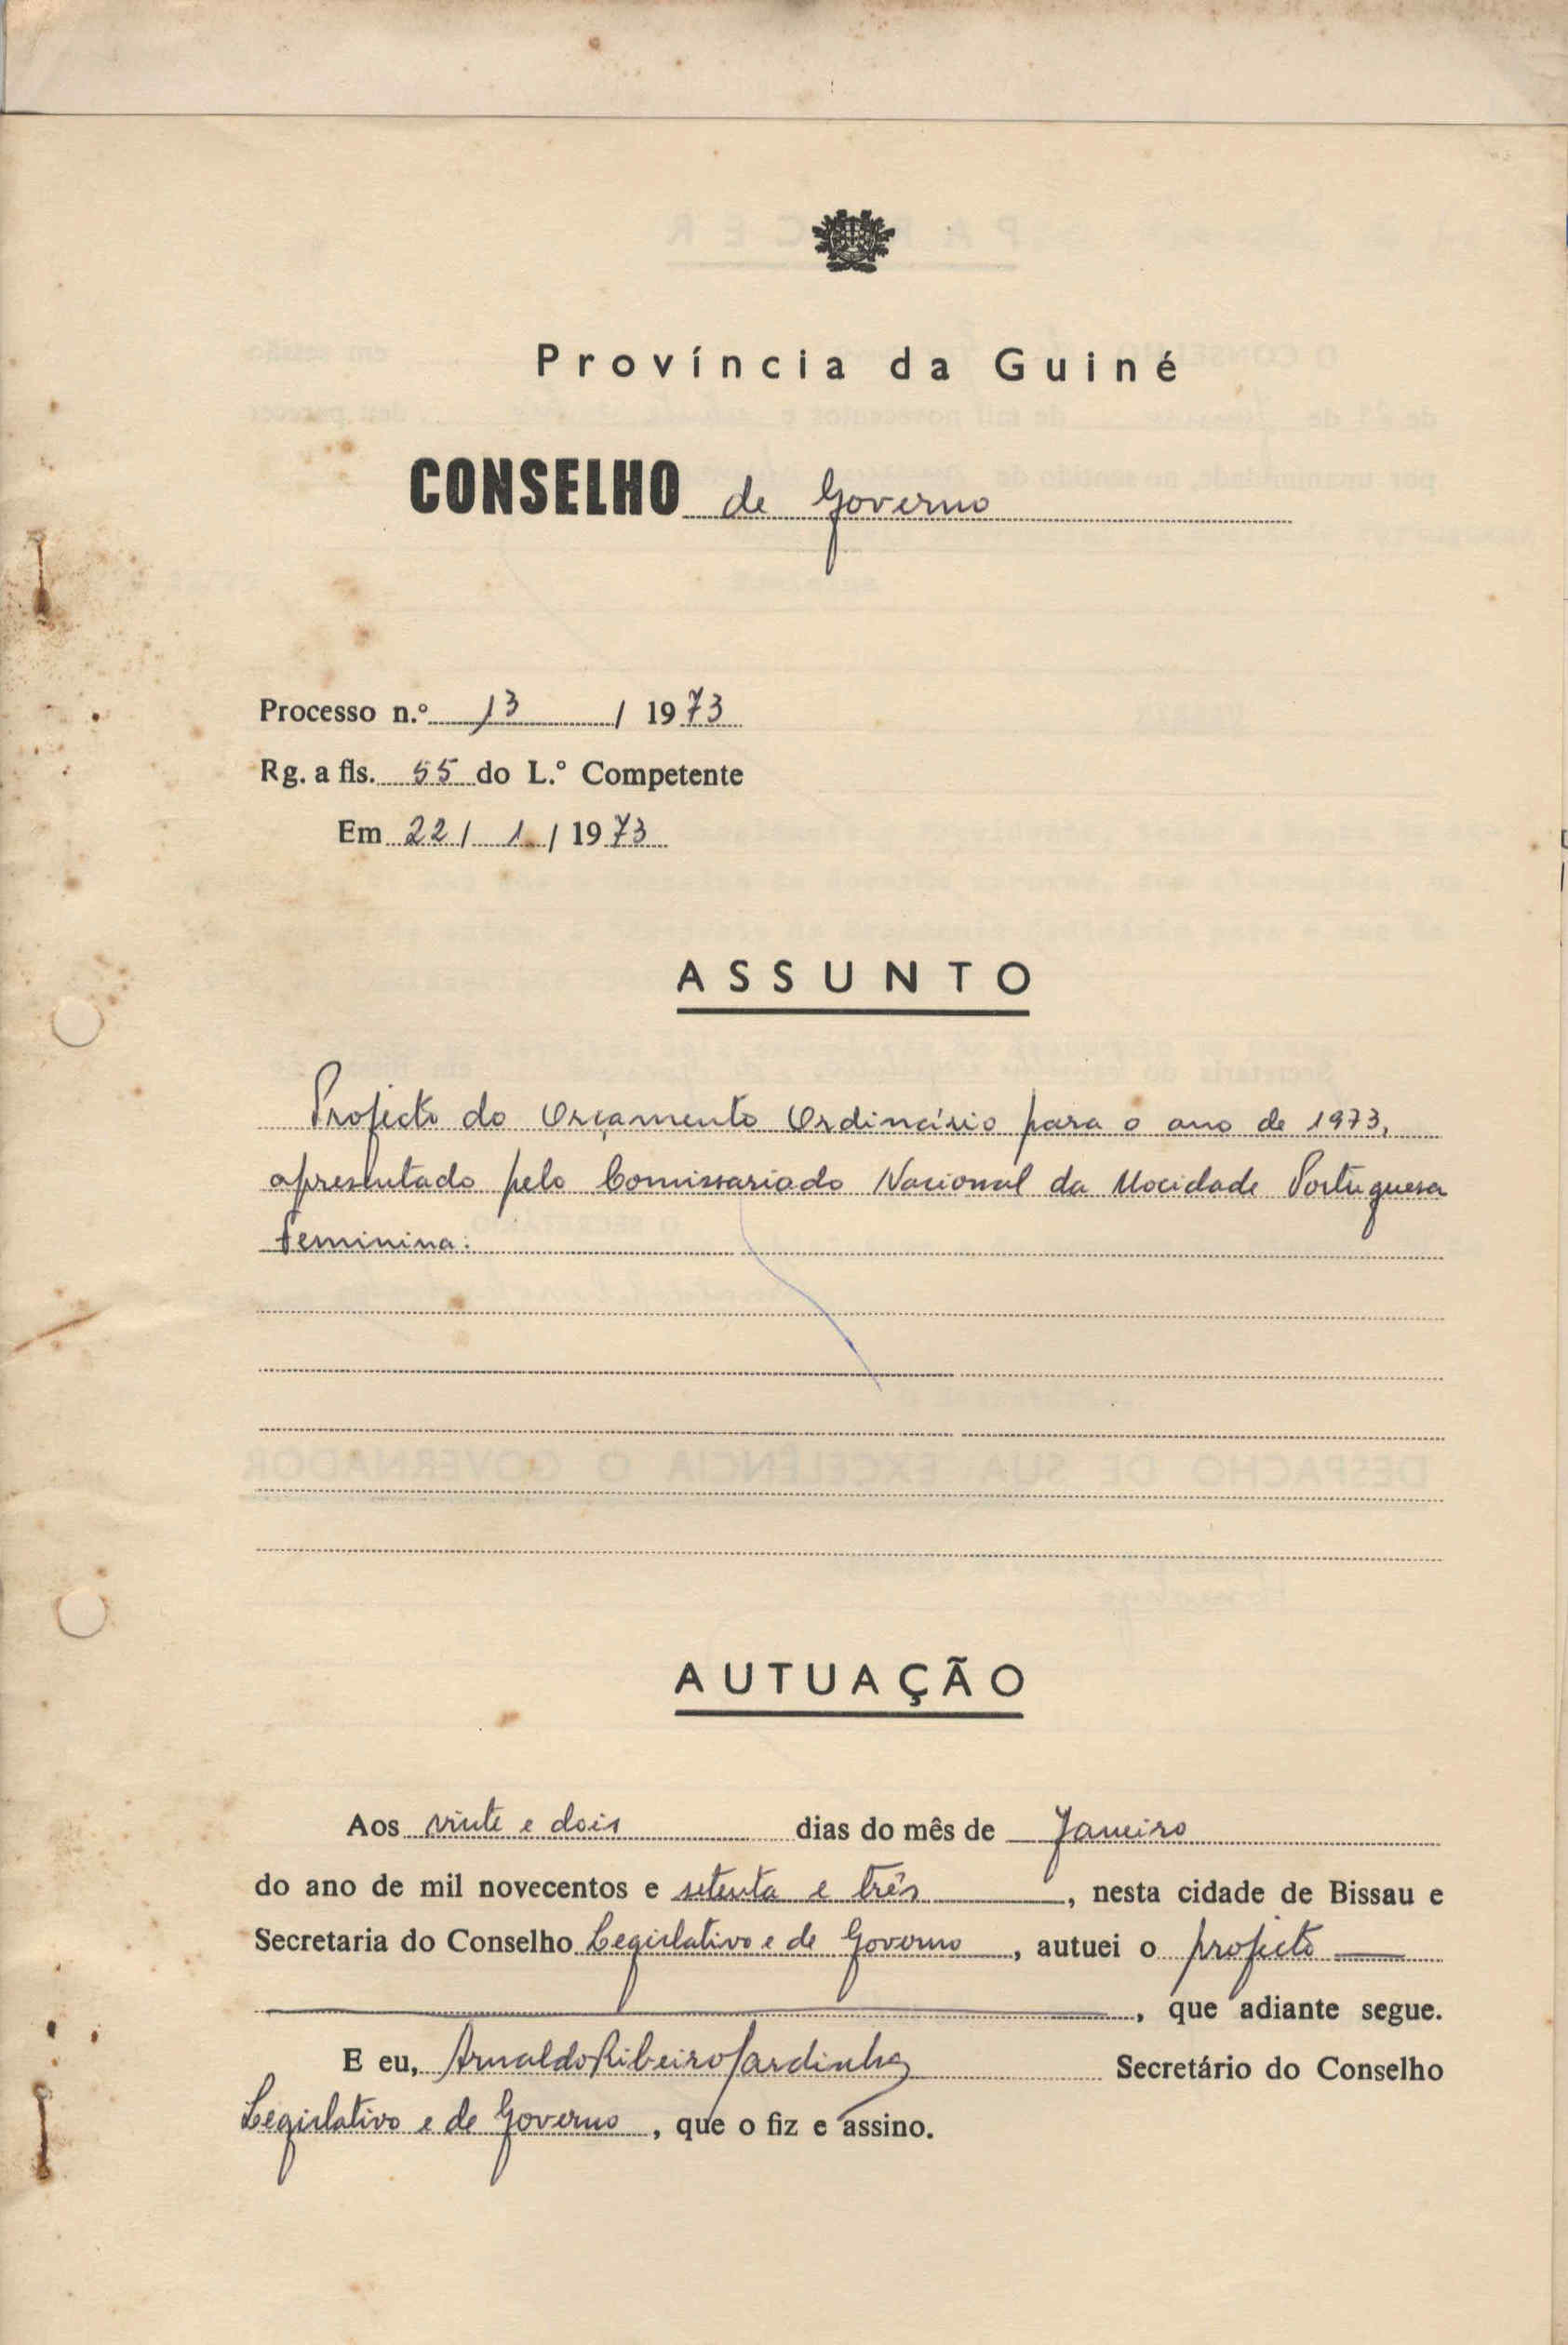 Província da Guiné
CONSELHO de Governo
Processo n.º 13 / 1973
Rg. a fls. 55 do L.º Competente
Em 22 / 1 / 1973
ASSUNTO
Projecto do Orçamento Ordinário para o ano de 1973,
apresentado pelo Comissariado Nacional da Mocidade Portuguesa
Feminina.
AUTUAÇÃO
Aos vinte e dois dias do mês de Janeiro
do ano de mil novecentos e setenta e três, nesta cidade de Bissau e
Secretaria do Conselho Legislativo e de Governo, autuei o projecto
, que adiante segue.
E eu, Arnaldo Ribeiro Sardinha Secretário do Conselho
Legislativo e de Governo, que o fiz e assino.